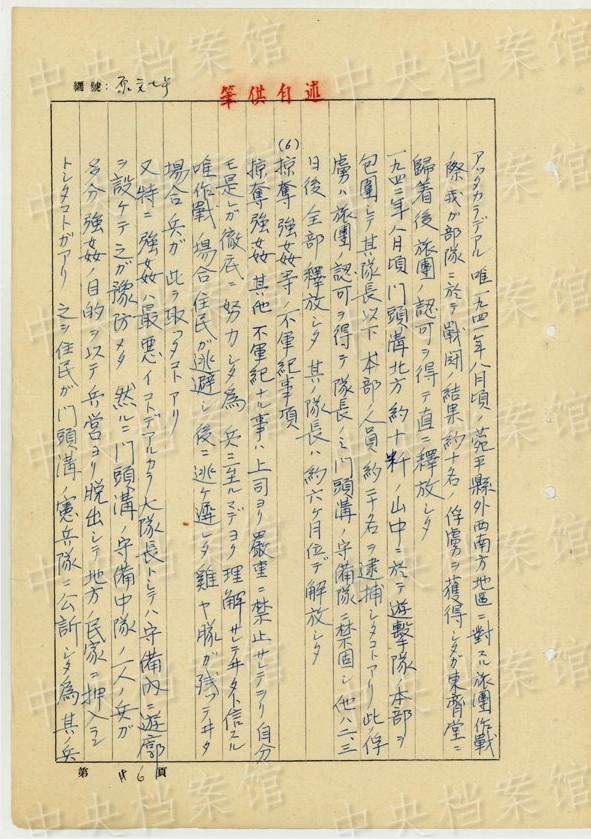 編號：原文七号
筆供自述
アツタカラデアル 唯一九四一年八月頃ノ菀平縣外西南方地區ニ對スル旅團作戰
ノ際我ガ部隊ニ於テ戰闘ノ結果約十名ノ俘虜ヲ獲得シタガ東齊堂ニ
歸着後旅團ノ認可ヲ得テ直ニ釋放シタ
一九四二年八月頃門頭溝北方約十粁ノ山中ニ於テ遊擊隊ノ本部ヲ
包圍シテ其隊長以下本部ノ人員約二十名ヲ逮捕シタコトアリ此ノ俘
虜ハ旅團ノ認可ヲ得テ隊長ノミ門頭溝ノ守備隊ニ禁固シ他ハ二、三
日後全部ノ釋放シタ 其ノ隊長ハ約六ヶ月位デ解放シタ
(6)掠奪強姦等ノ不軍紀事項
掠奪強姦其他不軍紀ナル事ハ上司ヨリ嚴重ニ禁止サレテヲリ自分
モ是レガ徹底ニ努力シタ為兵ニ至ルマデヨク理解サレテヰタト信スル
唯作戰ノ場合住民ガ逃避シ後ニ逃ゲ遲レタ雞ヤ豚ガ殘ツテヰタ
場合兵ガ此ヲ取ツタコトアリ
又特ニ強姦ハ最悪イコトデアルカラ大隊長トシテハ守備內ニ遊廓
ヲ設ケテ之ガ豫防メタ 然ルニ門頭溝ノ守備中隊ノ一人ノ兵ガ
多分強姦ノ目的ヲ以テ兵営ヨリ脱出シテ地方ノ民家ニ押入ラ
トシタコトガアリ 之ヲ住民ガ門頭溝ノ憲兵隊ニ公訴シタ為其ノ兵
第 6 頁
中央档案馆